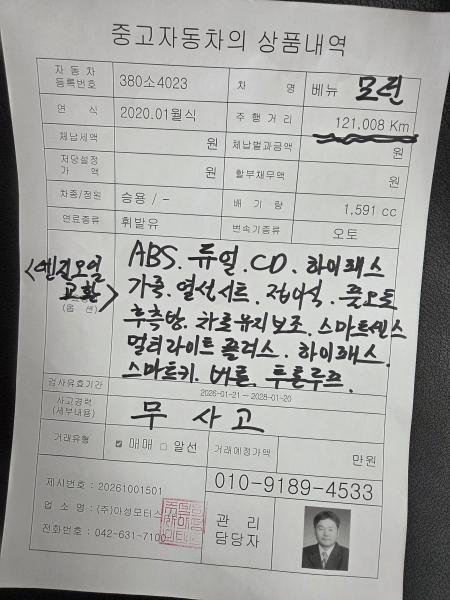 중고자동차의 상품내역
자 동 차 등록번호 380소4023 차 명 베뉴 모던
연 식 2020.01월식 주 행 거 리 121,008 Km
체납세액 원 체납벌과금액 원
저당설정 가 액 원 할부채무액 원
차종/정원 승용 / - 배 기 량 1,591 cc
연료종류 휘발유 변속기종류 오토
<엔진오일 교환>
(옵 션)
ABS. 듀얼. CD. 하이패스
가죽. 열선시트. 접이식. 풀오토
후측방. 차로유지보조. 스마트센스
멀티라이트 플러스. 하이패스.
스마트키. 버튼. 투톤루프.
검사유효기간 2026-01-21 ~ 2028-01-20
사고경력 (세부내용) 무 사고
거래유형 ☑ 매매 □ 알선 거래예정가액 만원
제시번호 : 20261001501 010-9189-4533
업 소 명 : (주)아성모터스
전화번호 : 042-631-7100
관 리 담당자